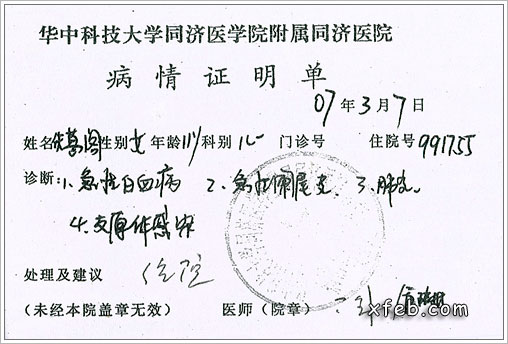 华中科技大学同济医学院附属同济医院
病情证明单
07年3月7日
姓名 性别女年龄11岁科别儿 门诊号 住院号991755
诊断:1、急性白血病 2、急性阑尾炎、3、肺炎、
4、支原体感染
处理及建议 住院
(未经本院盖章无效) 医师(院章)
xfeb.com